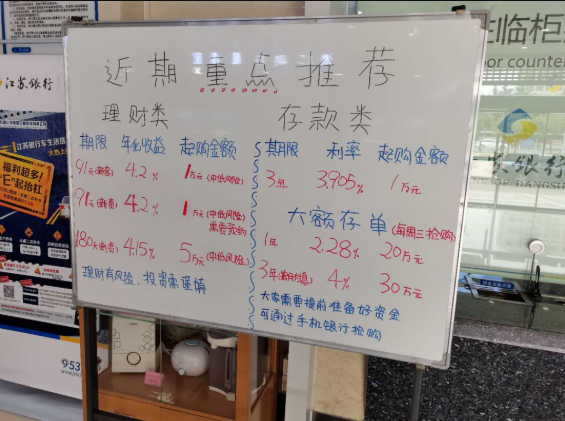 近期重点推荐
理财类
期限 年化收益 起购金额
91天(新客) 4.2% 1万元(中低风险)
91天(新客) 4.2% 1万元(中低风险)
需要预约
180天(新客) 4.15% 5万元(中低风险)
理财有风险,投资需谨慎
存款类
期限 利率 起购金额
3年 3.905% 1万元
大额存单(每周三抢购)
1年 2.28% 20万元
4% 30万元
大家需要提前准备好资金
可通过手机银行抢购
江苏银行
江苏银行车生活
福利超多!
"E"起抬杠
953
临柜
or counter
苏银行
OF JIANGSU